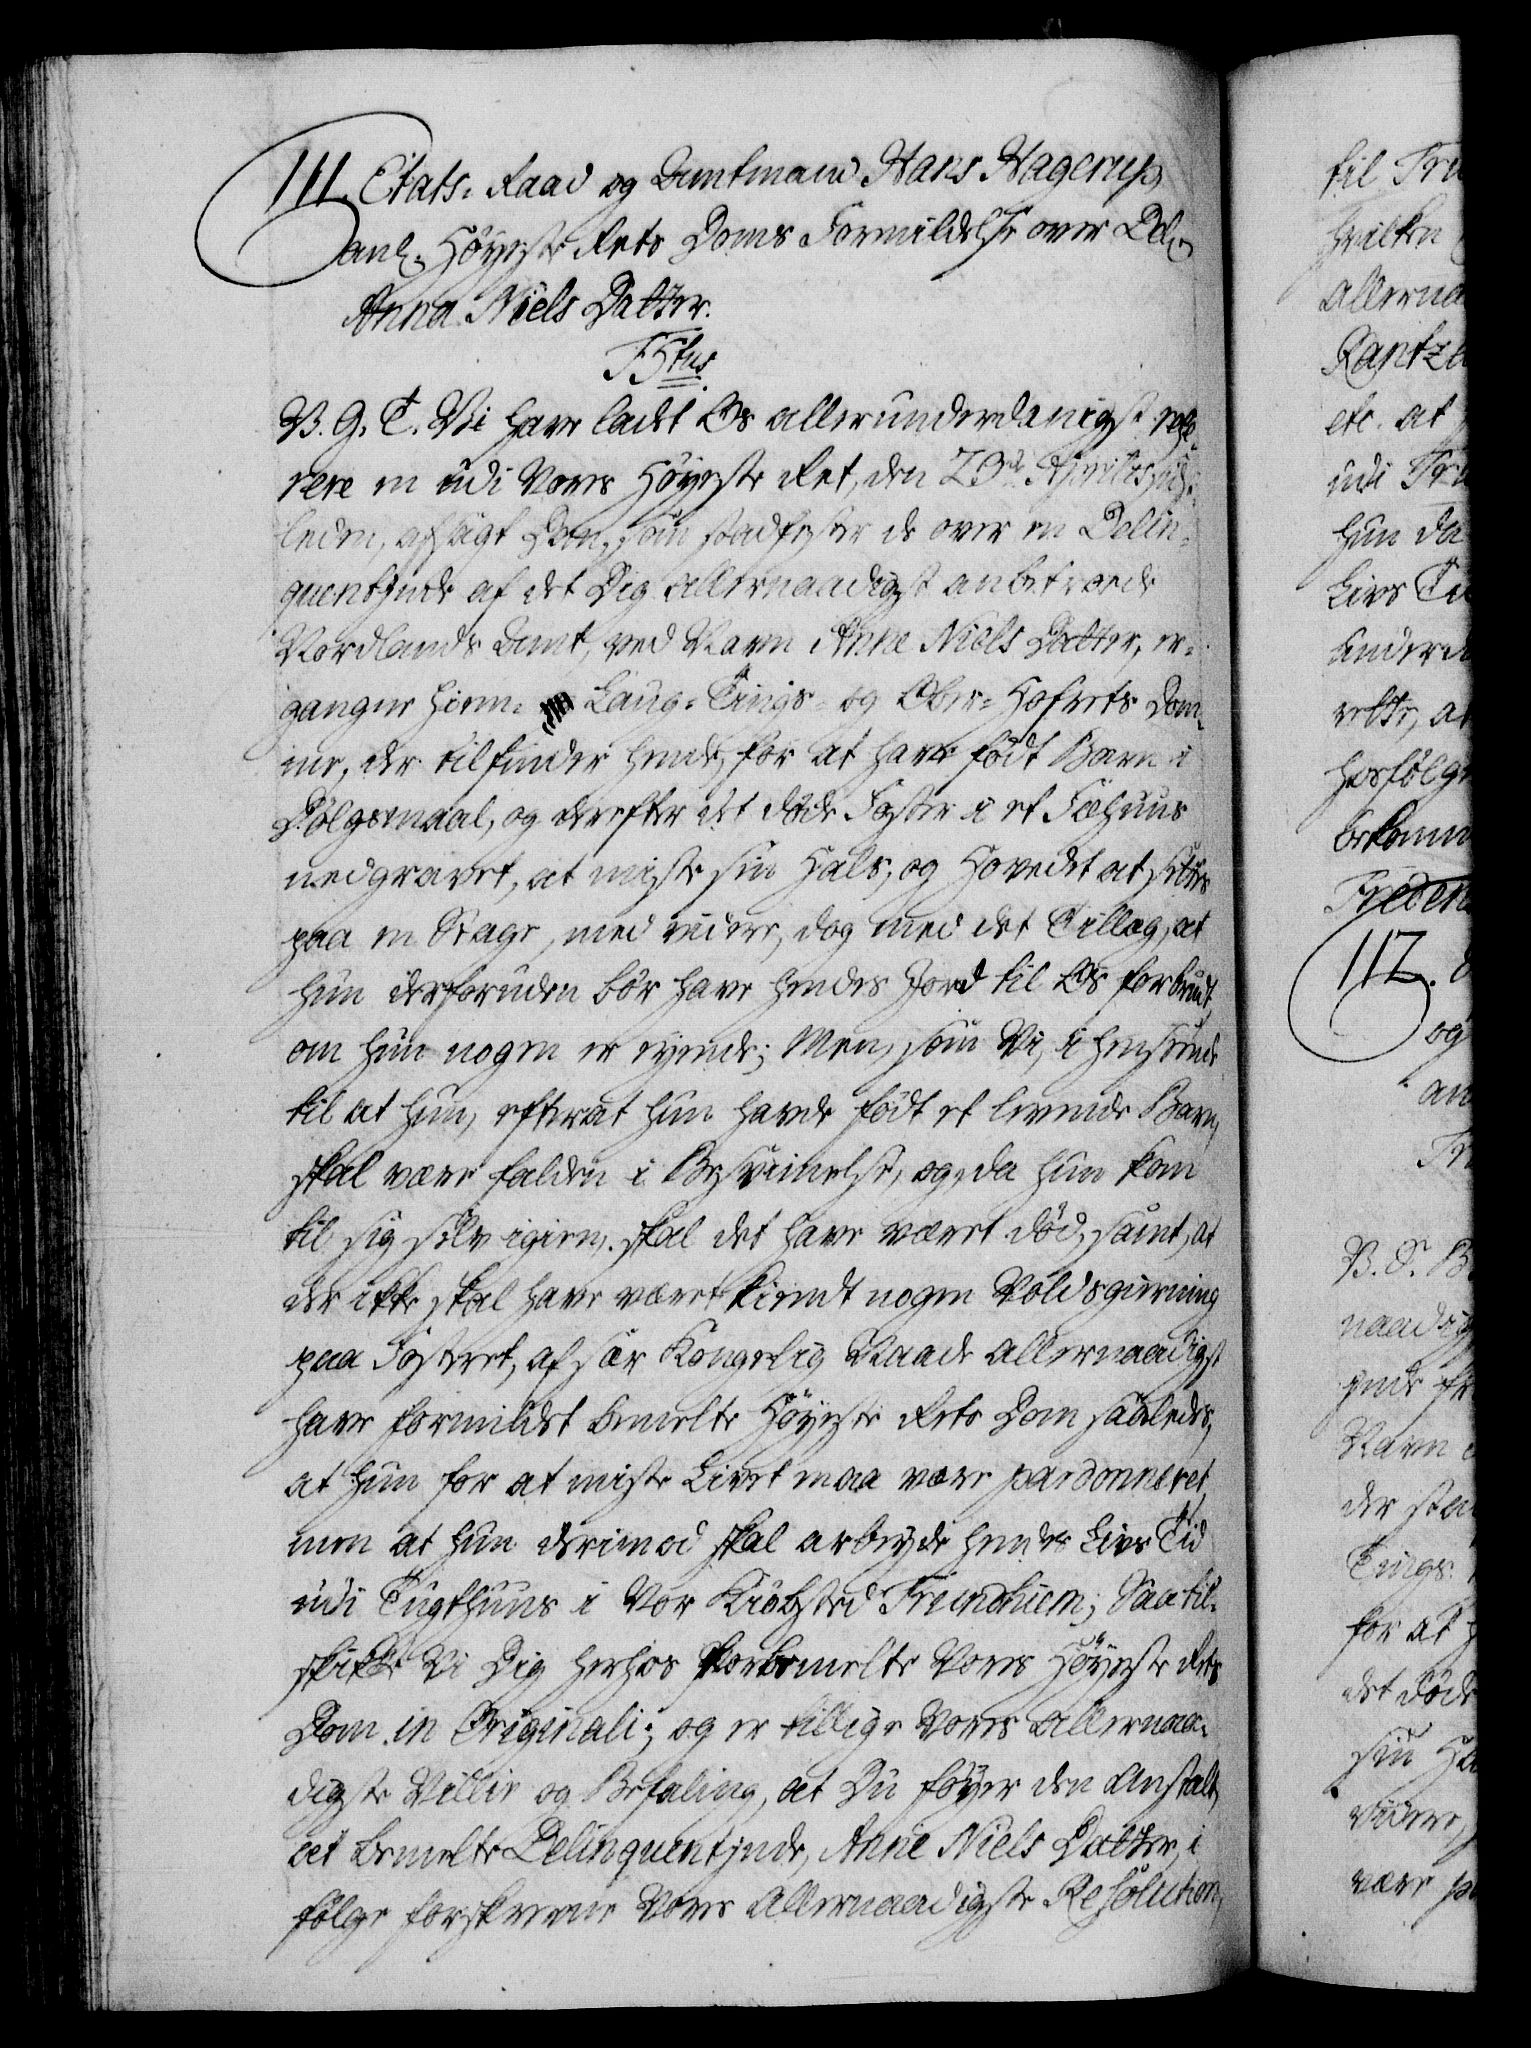 111. Etats-Raad og Amtmand Hans Hagerup
anl. Høyeste Rets Doms Formildelse over Del.
Anna Niels Datter.
F5tus.
V. G. T. Vi have ladet Os allerunderdanigst refe-
rere en udi Vores Høyeste Ret, den 23de Aprilis sidst-
leden, afsagt Dom, som stadfester de over en Delin-
quentinde af det Dig allernaadigst anbetroede
Nordlands Amt, ved Navn Anne Niels Datter, er-
gangne Hiem- Laug-Tings- og Ober-Hofrets Dom-
me, der tilfinder hende, for at have født Barn i
Dølgsmaal, og derefter det døde Foster i et Fæhuus
nedgravet, at miste sin Hals, og Hovedet at settes
paa en Stage, med videre, dog med det Tillæg, at
hun desforuden bør have hendes Jord til Os forbrudt,
om hun nogen er eyende; Men, som Vi, i henseende
til at hun, efterat hun havde født et levende Barn,
skal være falden i Besvimelse, og, da hun kom
til sig selv igien, skal det have været død, samt, at
der ikke skal have været kiendt nogen Voldsgierning
paa Fosteret, af sær Kongelig Naade allernaadigst
have formildet bemelte Høyeste Rets Dom saaledes,
at hun for at miste Livet maa være pardonneret,
men at hun derimod skal arbeyde hendes Livs Tid
udi Tugthuus i Vor Kiøbsted Trundhiem; Saa til-
skikke Vi Dig herhos forbemelte Vores Høyeste Rets
Dom in Originali; og er tillige Vores allernaa-
digste Villie og Befaling, at Du føyer den Anstalt,
at bemelte Delinquentinde, Anne Niels Datter, i
følge forskrevne Vores allernaadigste Resolution,
til Tru
hvilken
allerna
Rantza
etc. at
udi Tru
hun da
Livs Ti
under
rette, at
hosfølg
bekomm
Frederi
112.
og
an
V. G.
naadig
Navn
der sta
Tings
for at h
det døde
sin Ha
videre,
være pa